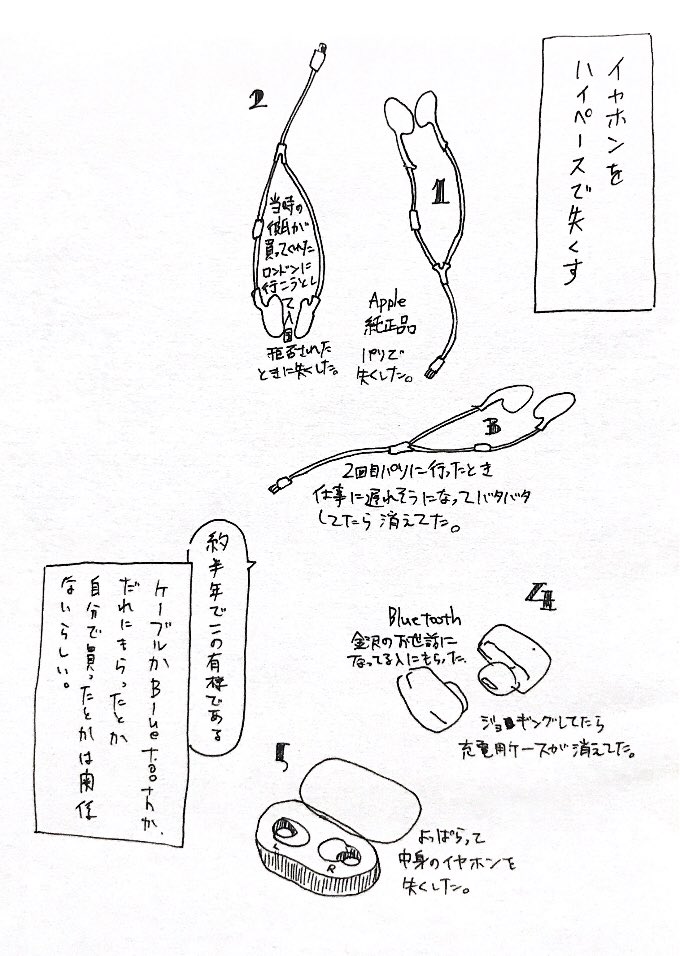 イヤホンを
ハイペースで失くす
1
Apple
純正品
パリで
失くした。
2
当時の
彼氏が
買ってくれた
ロンドンに
行こうとし
て入国
拒否された
ときに失くした。
3
2回目パリに行ったとき
仕事に遅れそうになってバタバタ
してたら消えてた。
4
Bluetooth
金沢のお世話に
なってる人にもらった。
ジョギングしてたら
充電用ケースが消えてた。
5
L
R
よっぱらって
中身のイヤホンを
失くした。
約半年でこの有様である
ケーブルかBluetoothか、
だれにもらったとか
自分で買ったとかは関係
ないらしい。